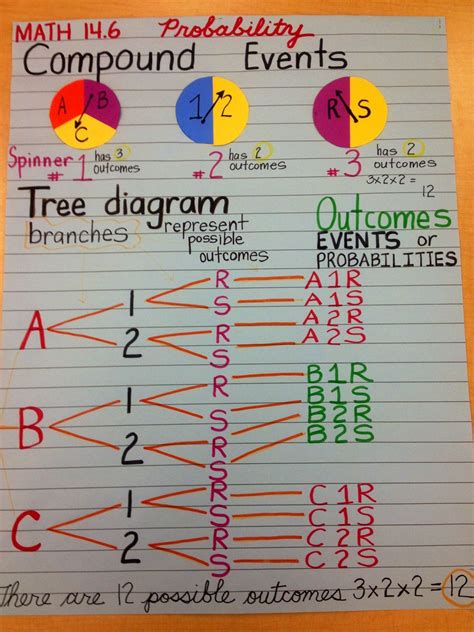 MATH 14.6 Probability
Compound Events
A B C
1 2
R S
Spinner #1 has 3 outcomes
#2 has 2 outcomes
#3 has 2 outcomes
3x2x2 = 12
Tree diagram
branches
represent possible outcomes
Outcomes
EVENTS or
PROBABILITIES
A
1
R A1R
S A1S
2
R A2R
S A2S
B
1
R B1R
S B1S
2
R B2R
S B2S
C
1
R C1R
S C1S
2
R C2R
S C2S
There are 12 possible outcomes 3x2x2 = 12